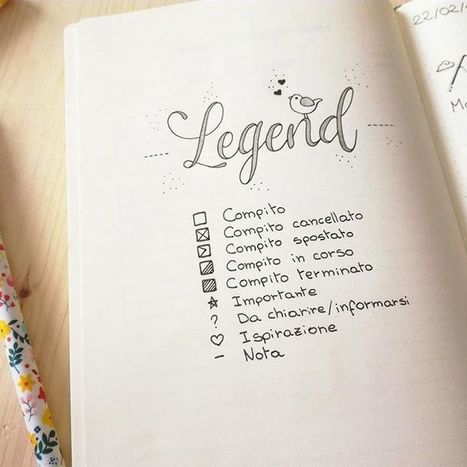 Legend
Compito
Compito cancellato
Compito spostato
Compito in corso
Compito terminato
Importante
? Da chiarire/informarsi
Ispirazione
- Nota
22/02/